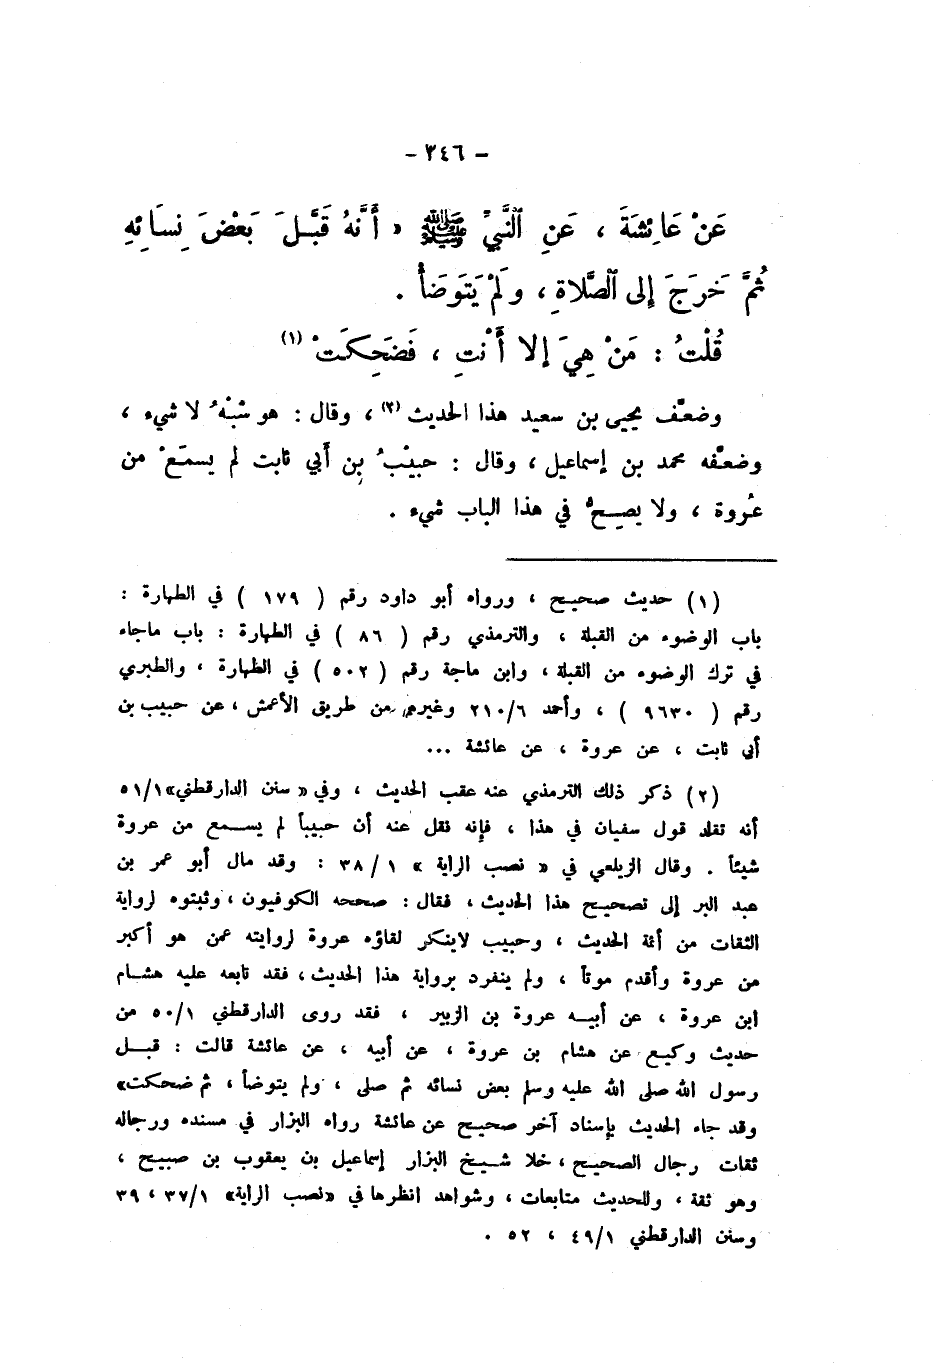 - ٣٤٦ -
عَنْ عَائِشَةَ ، عَنِ ٱلنَّبيِّ ﷺ « أَنَّهُ قَبَّلَ بَعْضَ نِسَائِهِ
ثُمَّ خَرَجَ إِلى ٱلصَّلاةِ ، ولَمْ يَتَوَضَأْ .
قُلْتُ : مَنْ هِيَ إلا أَنْتِ ، فَضَحِكَتْ (١)
وضعَّف يحيى بن سعيد هذا الحديث (٢) ، وقال : هو شبْهُ لا شيء ،
وضعَّفه محمد بن إسماعيل ، وقال : حبيْبُ بن أبي ثابت لم يسمَعْ من
عُروة ، ولا يصِحُّ في هذا الباب شيء .
(١) حديث صحيح ، ورواه أبو داود رقم ( ١٧٩ ) في الطهارة :
باب الوضوء من القبلة ، والترمذي رقم ( ٨٦ ) في الطهارة : باب ماجاء
في ترك الوضوء من القبلة ، وابن ماجة رقم ( ٥٠٢ ) في الطهارة ، والطبري
رقم ( ٩٦٣٠ ) ، وأحمد ٢١٠/٦ وغيرهم من طريق الأعمش ، عن حبيب بن
أبي ثابت ، عن عروة ، عن عائشة ...
(٢) ذكر ذلك الترمذي عنه عقب الحديث ، وفي « سنن الدارقطني» ٥١/١
أنه تقلد قول سفيان في هذا ، فإنه نقل عنه أن حبيباً لم يسمع من عروة
شيئاً . وقال الزيلعي في « نصب الراية » ١ / ٣٨ : وقد مال أبو عمر بن
عبد البر إلى تصحيح هذا الحديث ، فقال : صححه الكوفيون ، وثبتوه لرواية
الثقات من أئمة الحديث ، وحبيب لاينكر لقاؤه عروة لروايته عمن هو أكبر
من عروة وأقدم موتاً ، ولم ينفرد برواية هذا الحديث ، فقد تابعه عليه هشام
ابن عروة ، عن أبيه عروة بن الزبير ، فقد روى الدارقطني ٥٠/١ من
حديث وكيع عن هشام بن عروة ، عن أبيه ، عن عائشة قالت : قبل
رسول الله صلى الله عليه وسلم بعض نسائه ثم صلى ، ولم يتوضأ ، ثم ضحكت»
وقد جاء الحديث بإسناد آخر صحيح عن عائشة رواه البزار في مسنده ورجاله
ثقات رجال الصحيح ، خلا شيخ البزار إسماعيل بن يعقوب بن صبيح ،
وهو ثقة ، وللحديث متابعات ، وشواهد انظرها في «نصب الراية» ٣٧/١ ، ٣٩
وسنن الدارقطني ٤٩/١ ، ٥٢ .